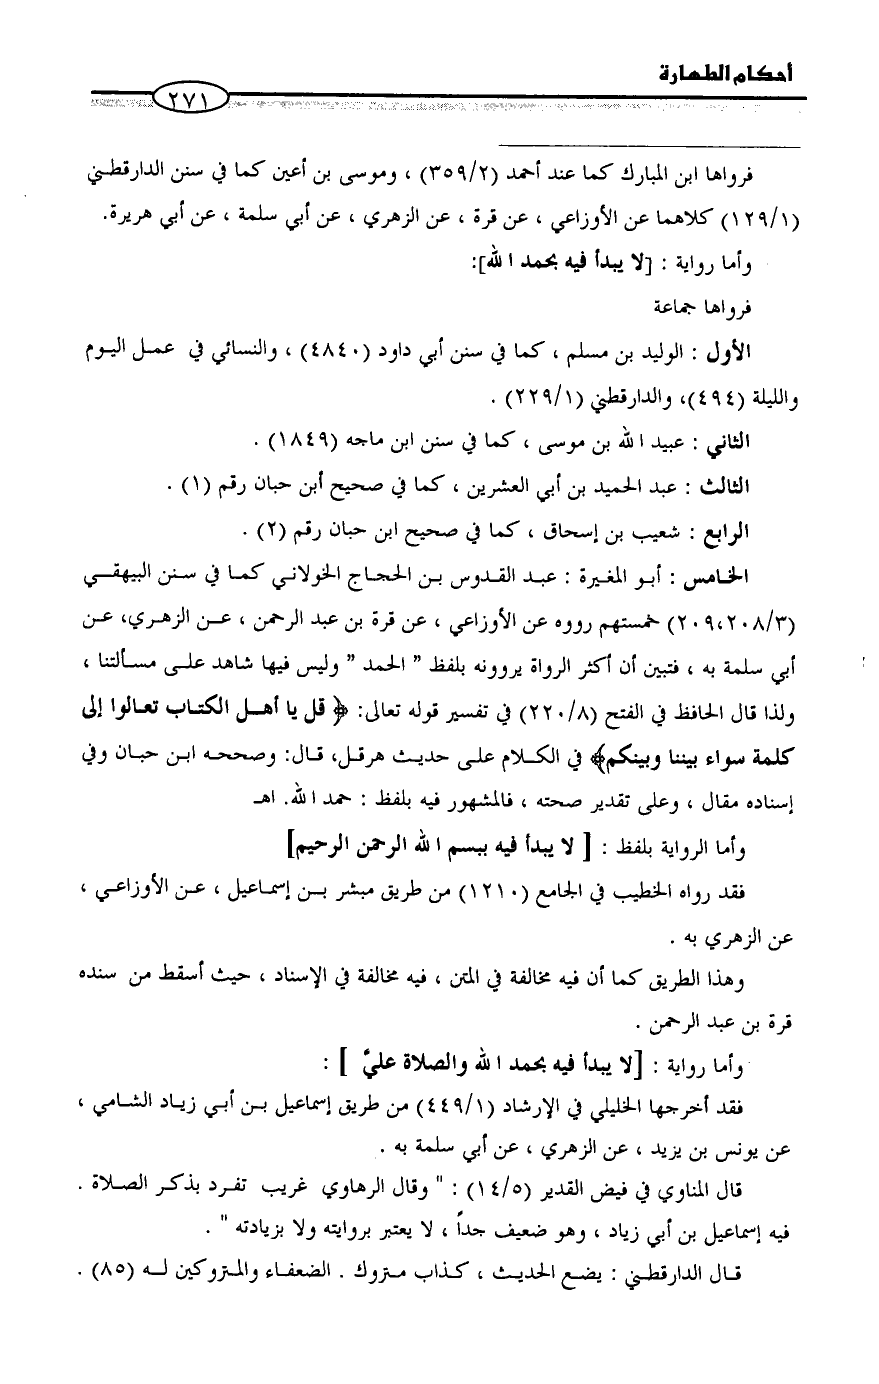 أحكام الطهارة
٢٧١
فرواها ابن المبارك كما عند أحمد (٣٥٩/٢) ، وموسى بن أعين كما في سنن الدارقطني
(١٢٩/١) كلاهما عن الأوزاعي ، عن قرة ، عن الزهري ، عن أبي سلمة ، عن أبي هريرة.
وأما رواية : [لا يبدأ فيه بحمد الله]:
فرواها جماعة
الأول : الوليد بن مسلم ، كما في سنن أبي داود (٤٨٤٠) ، والنسائي في عمل اليوم
والليلة (٤٩٤)، والدارقطني (٢٢٩/١) .
الثاني : عبيد الله بن موسى ، كما في سنن ابن ماجه (١٨٤٩) .
الثالث : عبد الحميد بن أبي العشرين ، كما في صحيح أبن حبان رقم (١) .
الرابع : شعيب بن إسحاق ، كما في صحيح ابن حبان رقم (٢) .
الخامس : أبو المغيرة : عبد القدوس بن الحجاج الخولاني كما في سنن البيهقي
(٢٠٩،٢٠٨/٣) خمستهم رووه عن الأوزاعي ، عن قرة بن عبد الرحمن ، عن الزهري، عن
أبي سلمة به ، فتبين أن أكثر الرواة يروونه بلفظ " الحمد " وليس فيها شاهد على مسألتنا ،
ولذا قال الحافظ في الفتح (٢٢٠/٨) في تفسير قوله تعالى: ﴿ قل يا أهل الكتاب تعالوا إلى
كلمة سواء بيننا وبينكم﴾ في الكلام على حديث هرقل، قال: وصححه ابن حبان وفي
إسناده مقال ، وعلى تقدير صحته ، فالمشهور فيه بلفظ : حمد الله. اهـ
وأما الرواية بلفظ : [ لا يبدأ فيه ببسم الله الرحمن الرحيم]
فقد رواه الخطيب في الجامع (١٢١٠) من طريق مبشر بن إسماعيل ، عن الأوزاعي ،
عن الزهري به .
وهذا الطريق كما أن فيه مخالفة في المتن ، فيه مخالفة في الإسناد ، حيث أسقط من سنده
قرة بن عبد الرحمن .
وأما رواية : [لا يبدأ فيه بحمد الله والصلاة عليَّ ] :
فقد أخرجها الخليلي في الإرشاد (٤٤٩/١) من طريق إسماعيل بن أبي زياد الشامي ،
عن يونس بن يزيد ، عن الزهري ، عن أبي سلمة به .
قال المناوي في فيض القدير (١٤/٥) : " وقال الرهاوي غريب تفرد بذكر الصلاة .
فيه إسماعيل بن أبي زياد ، وهو ضعيف جداً ، لا يعتبر بروايته ولا بزيادته " .
قال الدارقطني : يضع الحديث ، كذاب متروك . الضعفاء والمتروكين له (٨٥) .